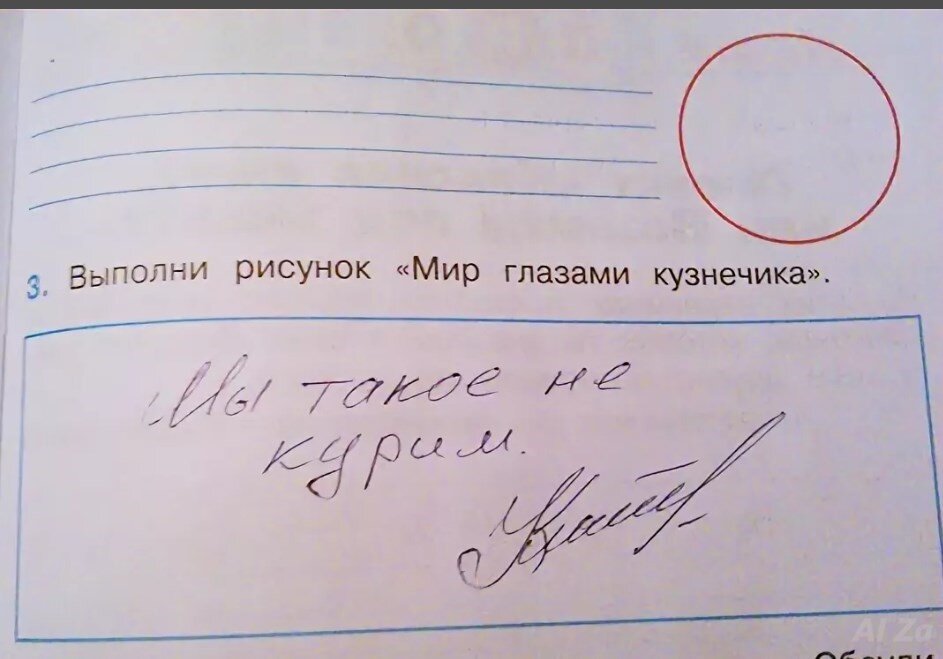 3. Выполни рисунок «Мир глазами кузнечика».
Мы такое не
курим.
Al Za